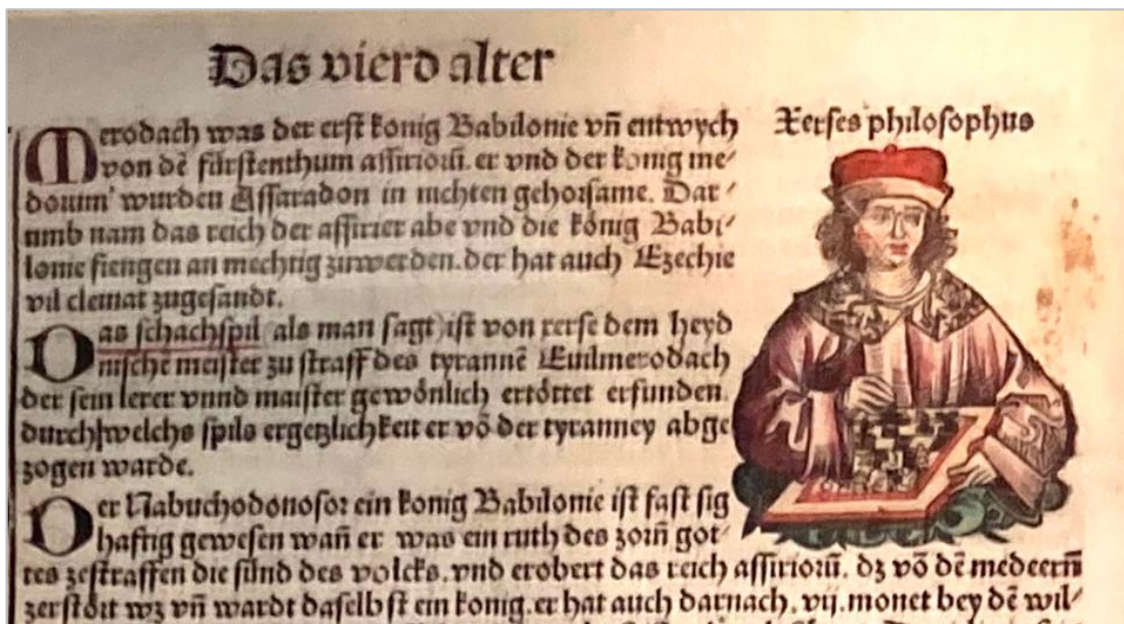 Das vierd alter
Merodach was der erst konig Babilonie vñ entwych
von dē fürstenthum assirioū. er vnd der konig me⸗
doum' wurden Assaradon in nichten gehorsame. Dar⸗
umb nam das reich der assirier abe vnd die könig Babi⸗
lonie fiengen an mechtig zuwerden. der hat auch Ezechie
vil cleinat zugesandt.
Das schachspil (als man sagt) ist von xerse dem heyd
nischē meister zu straff des tyrannē Euilmerodach
der sein lerer vnnd maister gewönlich ertöttet erfunden.
durch welchs spils ergetzlichkeit er vō der tyranney abge
zogen warde.
Der Nabuchodonosor ein konig Babilonie ist fast sig
hafftig gewesen wañ er was ein ruth des zorñ got⸗
tes zestraffen die sünd des volcks. vnd erobert das reich assirioū. dz vō dē medeern̄
zerstört wz vñ wardt daselbst ein konig. er hat auch darnach. vij. monet bey dē wil⸗
Xerses philosophus